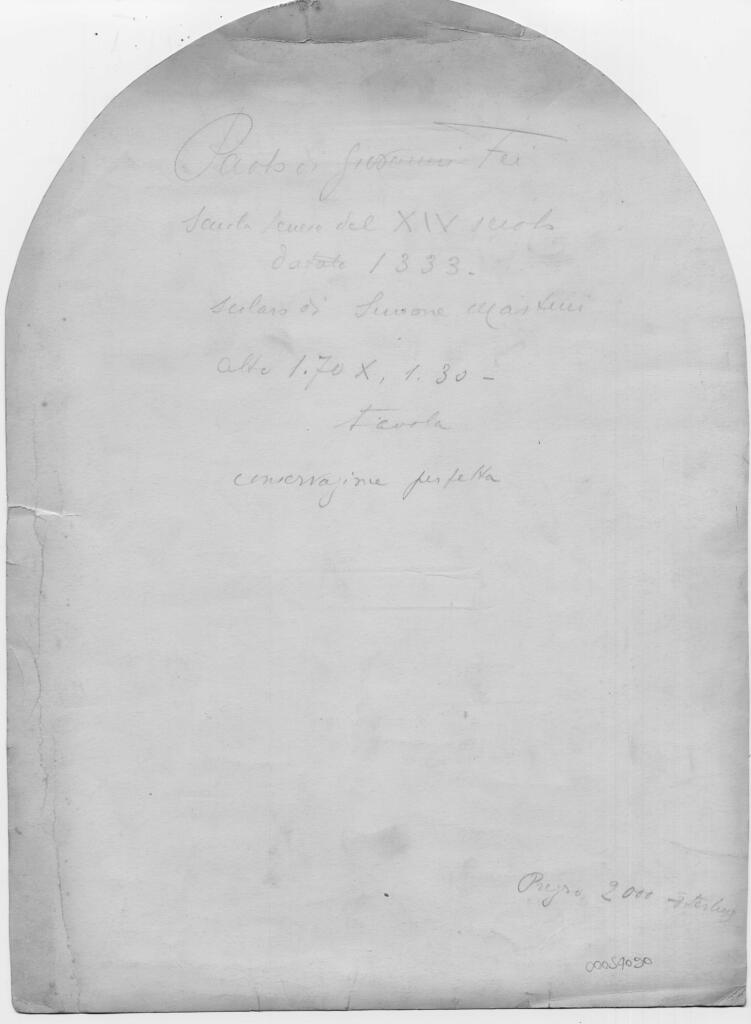 Paolo di Giovanni Fei
scuola senese del XIV secolo
datato 1333.
scolaro di Simone Martini
alto 1.70 X, 1.30 -
tavola
conservazione perfetta
Prezzo 2000 sterling
00054090